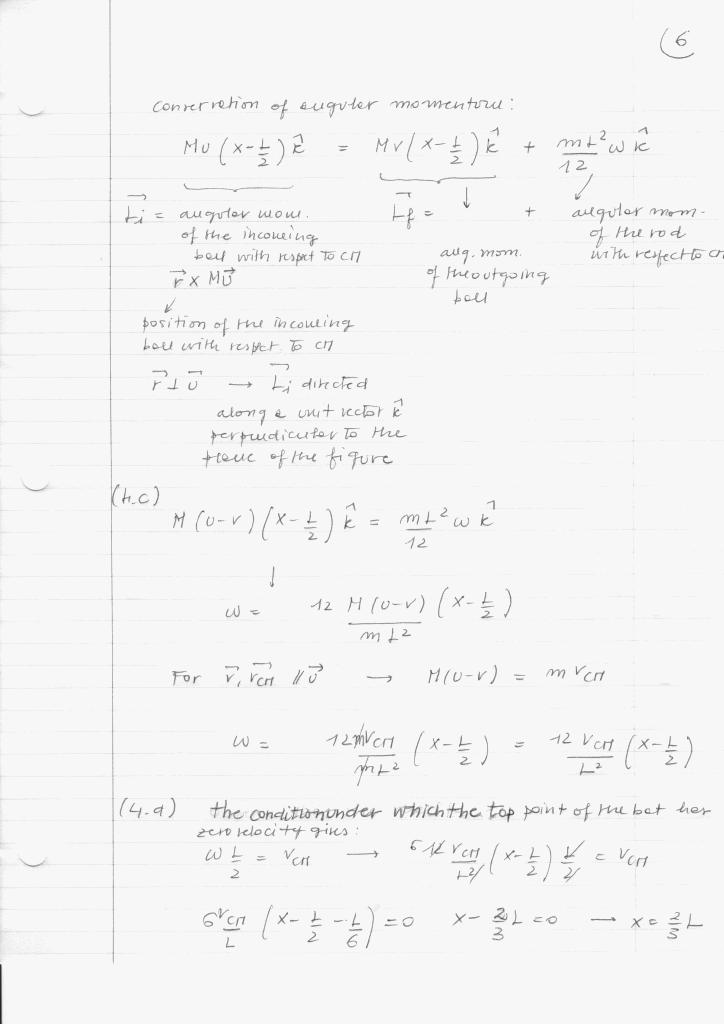 6
Conservation of angular momentum:
MU (x - L/2) k̂ = MV (x - L/2) k̂ + mL²/12 ω k̂
L⃗i = angular mom. of the incoming ball with respect to CM
r⃗ × MU⃗
L⃗f = ang. mom. of the outgoing ball + angular mom. of the rod with respect to CM
position of the incoming
ball with respect to CM
r⃗ ⊥ U⃗ → L⃗i directed
along a unit vector k̂
perpendicular to the
plane of the figure
(4.c)
M (U-V) (x - L/2) k̂ = mL²/12 ω k̂
↓
ω = 12 M (U-V)/mL² (x - L/2)
For V⃗, V⃗CM // U⃗ → M(U-V) = m VCM
ω = 12 m VCM/mL² (x - L/2) = 12 VCM/L² (x - L/2)
(4.d) the condition under which the top point of the bat has
zero velocity gives:
ω L/2 = VCM → 6 12 VCM/L² (x - L/2) L/2 = VCM
6 VCM/L (x - L/2 - L/6) = 0 x - 2/3 L = 0 → x = 2/3 L